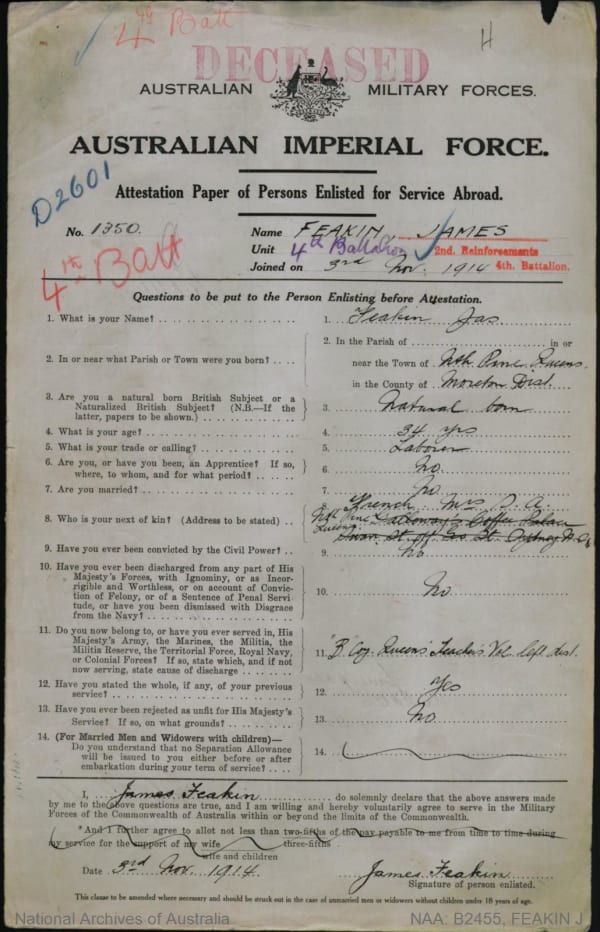 4th Batt
H
DECEASED
AUSTRALIAN MILITARY FORCES.
AUSTRALIAN IMPERIAL FORCE.
D2601
Attestation Paper of Persons Enlisted for Service Abroad.
No. 1350. Name FEAKIN, JAMES
Unit 4th Battalion 2nd. Reinforcements
Joined on 3rd Nov. 1914 4th. Battalion.
4th Batt
Questions to be put to the Person Enlisting before Attestation.
1. What is your Name? 1. Feakin Jas
2. In or near what Parish or Town were you born? 2. In the Parish of in or
near the Town of Nth Pine Queens.
in the County of Moreton Dist.
3. Are you a natural born British Subject or a
Naturalized British Subject? (N.B.—If the
latter, papers to be shown.) 3. Natural born
4. What is your age? 4. 34 yrs
5. What is your trade or calling? 5. Laborer
6. Are you, or have you been, an Apprentice? If so,
where, to whom, and for what period? 6. No
7. Are you married? 7. No
8. Who is your next of kin? (Address to be stated) 8. French Mrs D. A.
Nth Pine Coffee Palace
St. Sydney
9. Have you ever been convicted by the Civil Power? 9. No
10. Have you ever been discharged from any part of His
Majesty's Forces, with Ignominy, or as Incor-
rigible and Worthless, or on account of Convic-
tion of Felony, or of a Sentence of Penal Servi-
tude, or have you been Dismissed with Disgrace
from the Navy? 10. No.
11. Do you now belong to, or have you ever served in, His
Majesty's Army, the Marines, the Militia, the
Militia Reserve, the Territorial Force, Royal Navy,
or Colonial Forces? If so, state which, and if not
now serving, state cause of discharge 11. "B" Coy. Queens Teachers Vol. left dist.
12. Have you stated the whole, if any, of your previous
service? 12. Yes
13. Have you ever been rejected as unfit for His Majesty's
Service? If so, on what grounds? 13. No
14. (For Married Men and Widowers with children)—
Do you understand that no Separation Allowance
will be issued to you either before or after
embarkation during your term of service? 14.
I, James Feakin do solemnly declare that the above answers made
by me to the above questions are true, and I am willing and hereby voluntarily agree to serve in the Military
Forces of the Commonwealth of Australia within or beyond the limits of the Commonwealth.
*And I further agree to allot not less than two-fifths of the pay payable to me from time to time during
three-fifths
my service for the support of my wife
wife and children
Date 3rd Nov. 1914. James Feakin
Signature of person enlisted.
This clause to be amended where necessary and should be struck out in the case of unmarried men or widowers without children under 18 years of age.
National Archives of Australia NAA: B2455, FEAKIN J